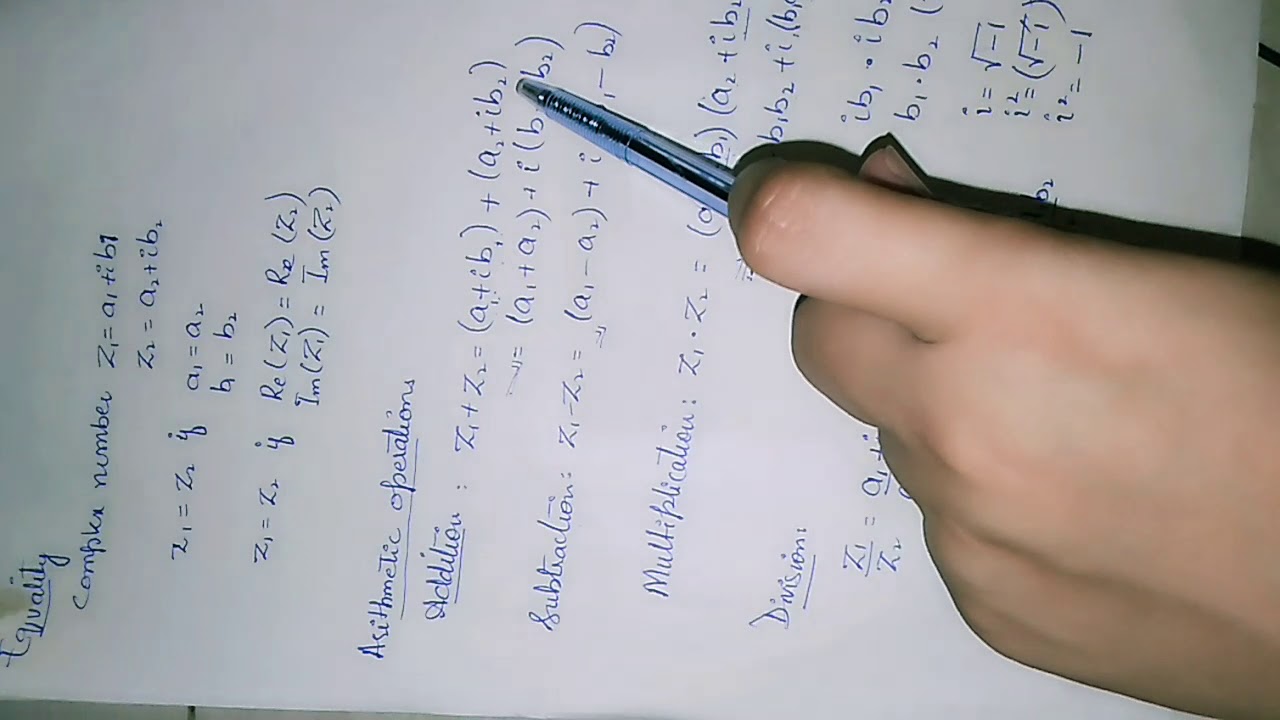 Equality
Complex number z₁ = a₁ + ib1
z₂ = a₂ + ib₂
z₁ = z₂ if a₁ = a₂
b₁ = b₂
z₁ = z₂ if Re(z₁) = Re(z₂)
Im(z₁) = Im(z₂)
Arithmetic operations
Addition: z₁ + z₂ = (a₁+ib₁) + (a₂+ib₂)
= (a₁+a₂) + i(b b₂)
Subtraction: z₁ - z₂ = (a₁ - a₂) + i - b₂)
Multiplication: z₁ · z₂ = (a b₁)(a₂+ib₂
b₁b₂ + i(b₁
Division:
z₁/z₂ = a₁+i
ib₁ · ib₂
b₁·b₂ (
i = √-1
i² = (√-1)
i² = -1
b₂